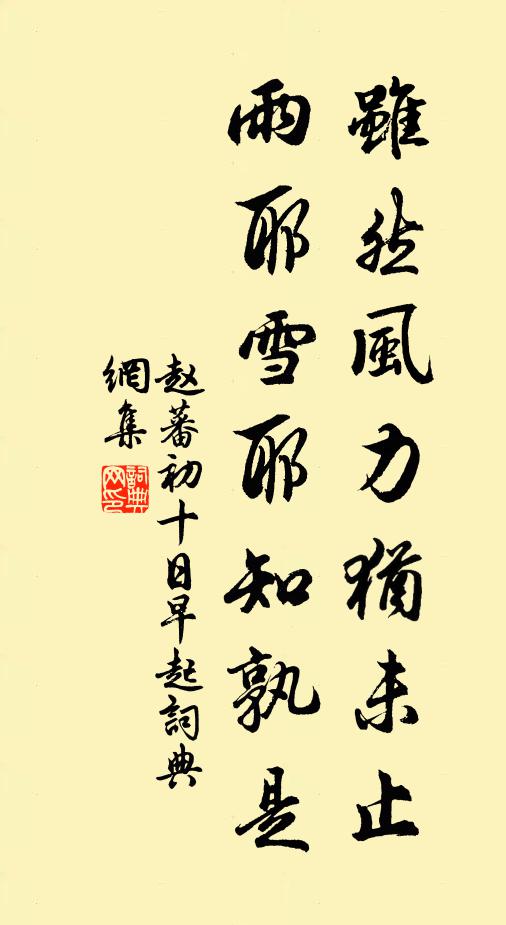 雖然風力猶未止
雨耶雪耶知孰是
赵蕃初十日早起詞典
網集
詞典
网印